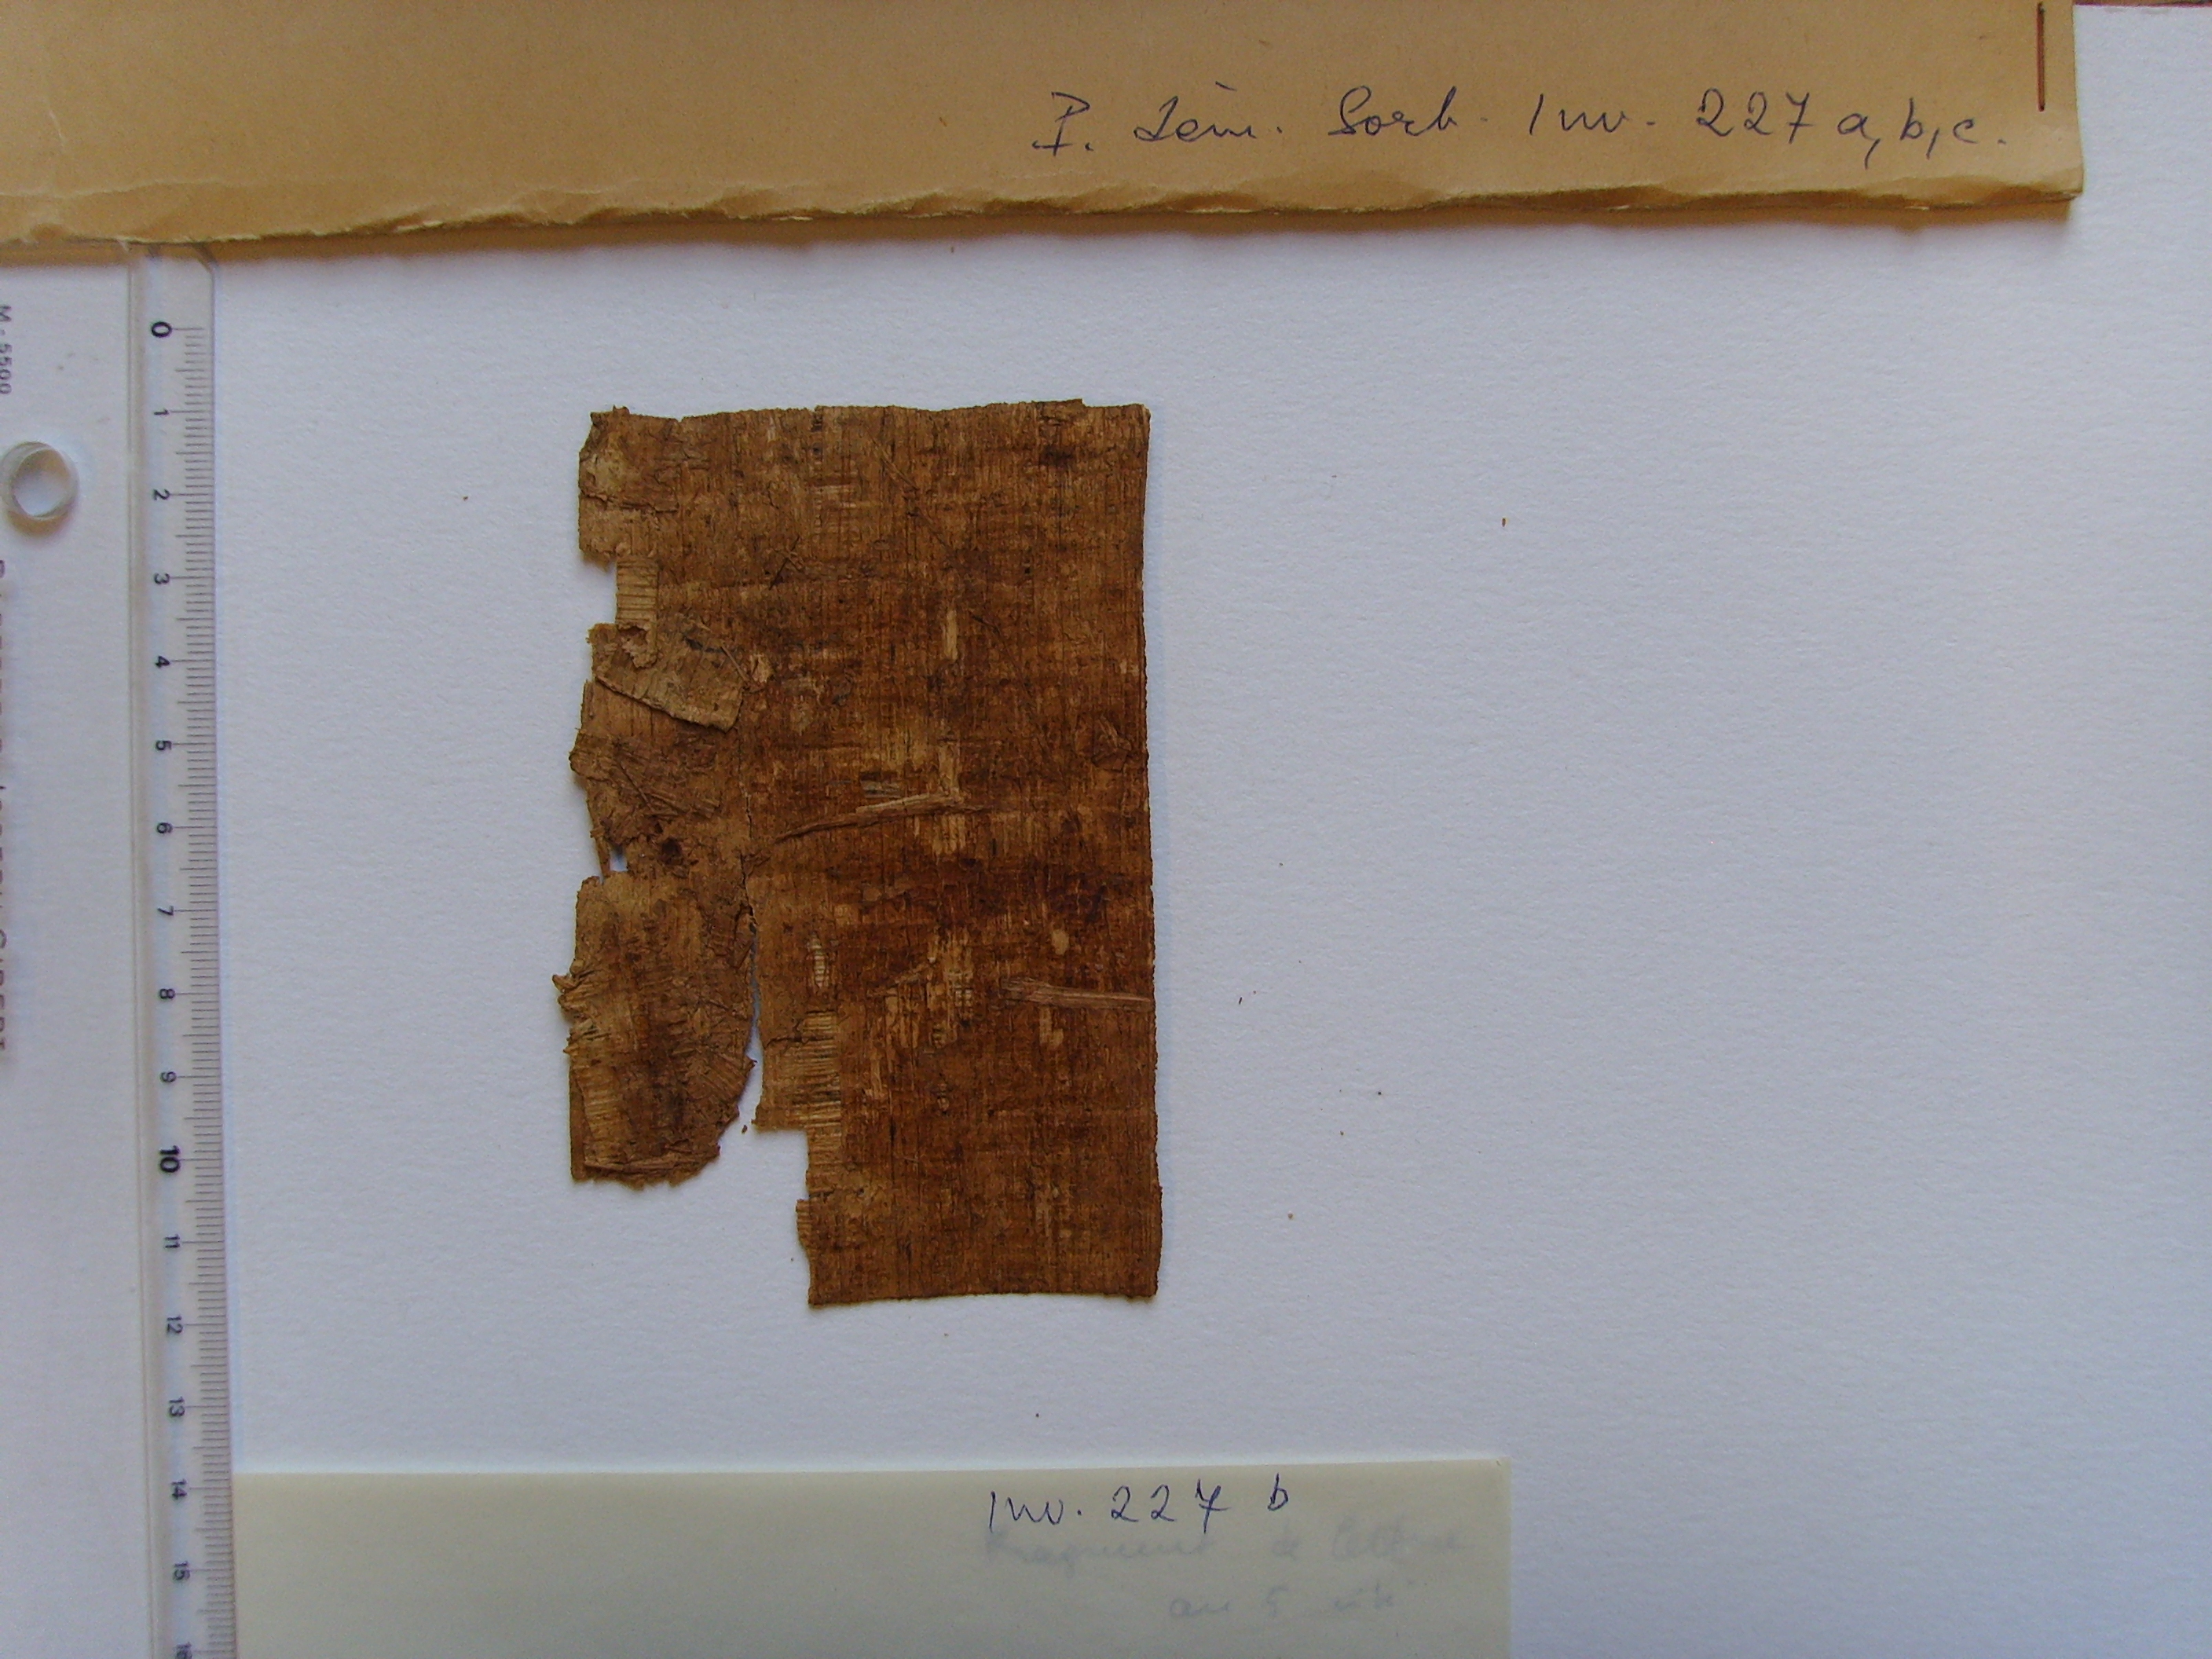 P. Dém. Sorb. Inv. 227 a, b, c.
M-5500
0
1
2
3
4
5
6
7
8
9
10
11
12
13
14
15
16
Inv. 227 b
Fragment de
an 5